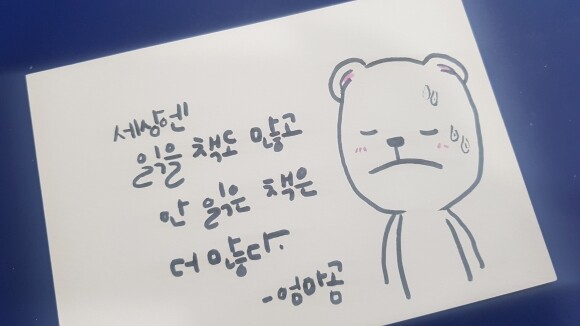 세상엔
읽을 책도 많고
안 읽은 책은
더 많다.
-엄마곰